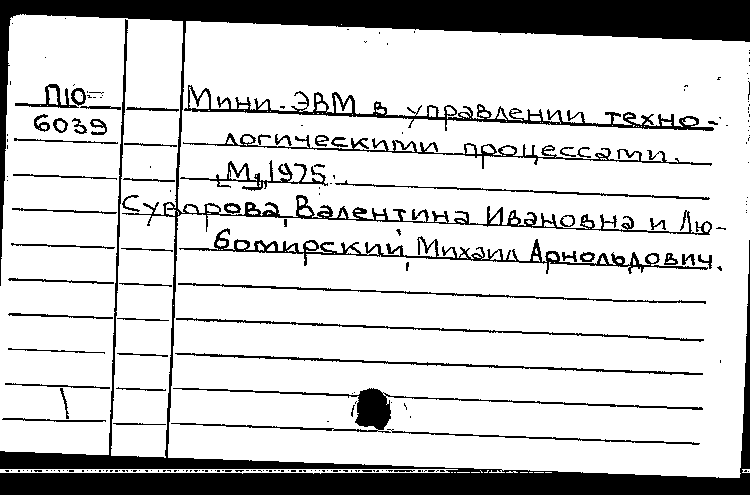 П10-
6039
Мини-ЭВМ в управлении техно-
логическими процессами.
М., 1975.
Суворова, Валентина Ивановна и Лю-
бомирский, Михаил Арнольдович.